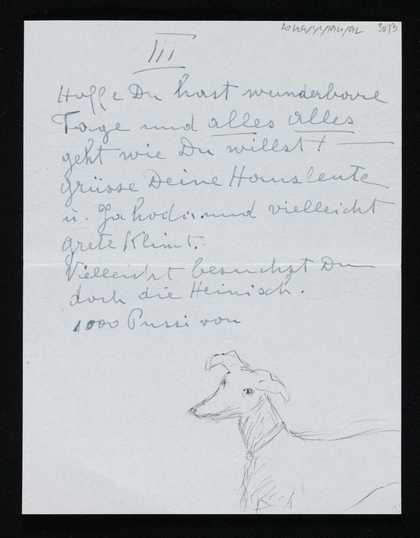 3073
III
Hoffe Du hast wunderbare
Tage und alles alles
geht wie Du willst! —
Grüsse Deine Hausleute
u. und vielleicht
Grete Klimt.
Vielleicht besuchst Du
doch die Heinisch.
1000 Pussi von